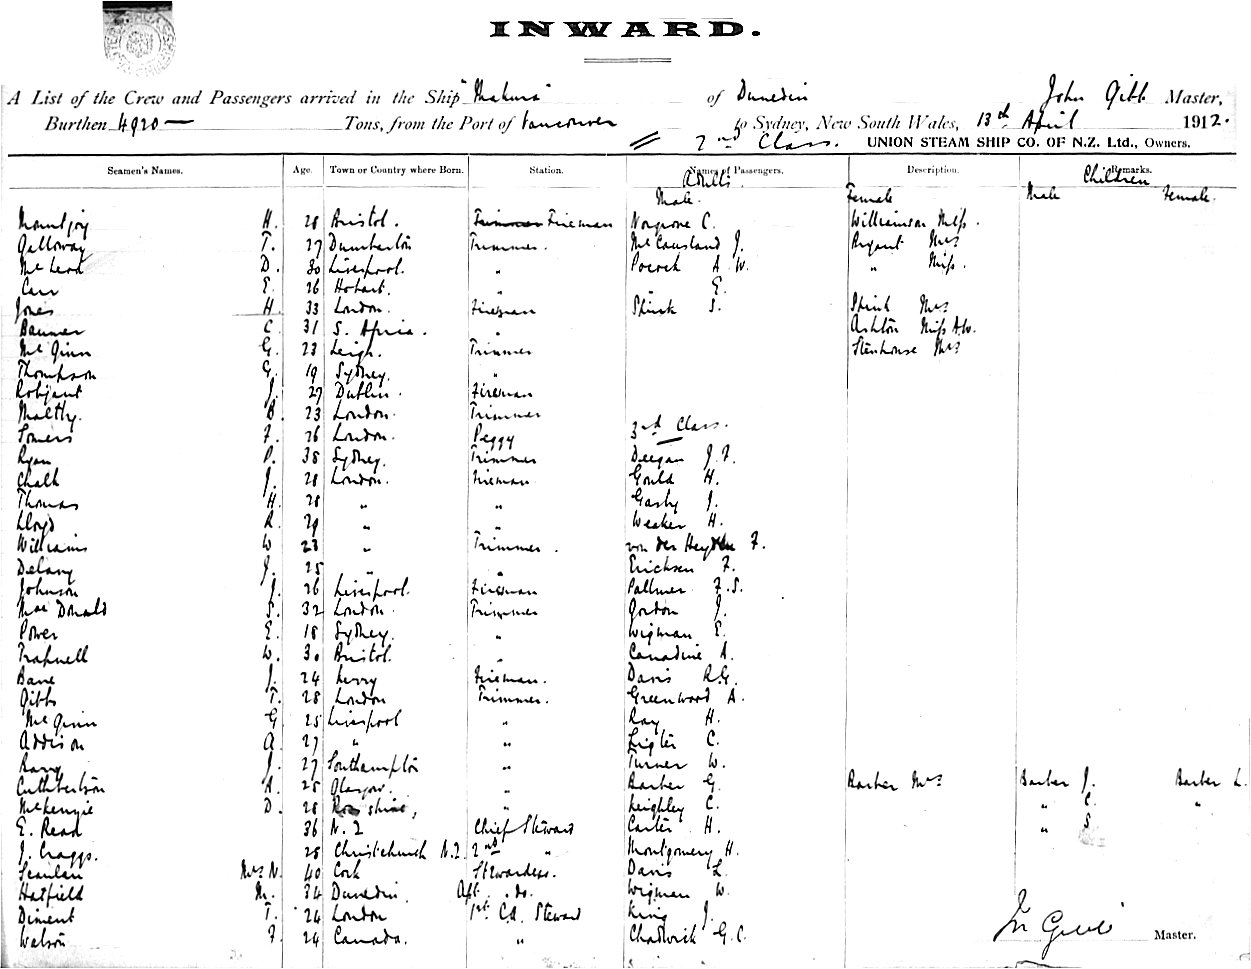 INWARD.
A List of the Crew and Passengers arrived in the Ship "Makura" of Dunedin John Gibb Master,
Burthen 4920 — Tons, from the Port of Vancouver to Sydney, New South Wales, 13th April 1912.
2nd Class. UNION STEAM SHIP CO. OF N.Z. Ltd., Owners.
Seamen's Names. Age. Town or Country where Born. Station. Names of Passengers. Description. Remarks.
Adults. Children
Male. Female Male Female.
Mountjoy H. 28 Bristol. Trimmer Fireman Norgrove C. Williamson Miss.
Galloway T. 27 Dumbarton Trimmer. McCausland J. Bryant Mrs
McLeod D. 30 Liverpool. " Pocock A. W. " Miss.
Carr E. 26 Hobart. " " E.
Jones H. 33 London. Fireman Shirk S. Shirk Mrs
Banner C. 31 S. Africa. " Ashton Miss A.W.
McGinn G. 23 Leigh. Trimmer Stenhouse Mrs
Thompson G. 19 Sydney. "
Robjant J. 27 Dublin. Fireman
Maltby. B. 23 London. Trimmer
Somers F. 26 London. Peggy 3rd Class.
Ryan P. 38 Sydney. Trimmer Deegan J. F.
Chalk J. 28 London. Fireman Gould H.
Thomas H. 28 " " Gasby J.
Lloyd R. 29 " " Weaker H.
Williams W 23 " Trimmer. von der Heyden F.
Delany J. 25 " " Erichsen F.
Johnson J. 26 Liverpool. Fireman Pallmer F. S.
MacDonald S. 32 London. Trimmer Gordon J.
Power E. 18 Sydney. " Wigman E.
Trapnell W. 30 Bristol. " Canadine A.
Bane J. 24 Kerry Fireman. Davis R.G.
Gibbs T. 28 London Trimmer. Greenwood A.
McGinn G 25 Liverpool " Ray H.
Addison A. 27 " " Ligter C.
Barry J. 27 Southampton " Turner W.
Cuthbertson A. 25 Glasgow. " Barber G. Barber Mrs Barber J. Barber L.
McKenzie D. 28 " Keighley C. " C. "
E. Read 36 N.Z Chief Steward Carter H. " S
J. Craggs. 28 Christchurch N.Z. 2nd " Montgomery H.
Scanlan Mrs N. 40 Cork Stewardess. Davis L.
Hatfield M. 34 Dunedin. Aft. do. Wigman W.
Diment T. 24 London 1st Cl. Steward King J.
Watson F. 24 Canada. " Chadwick G. C.
Jn Gibb Master.